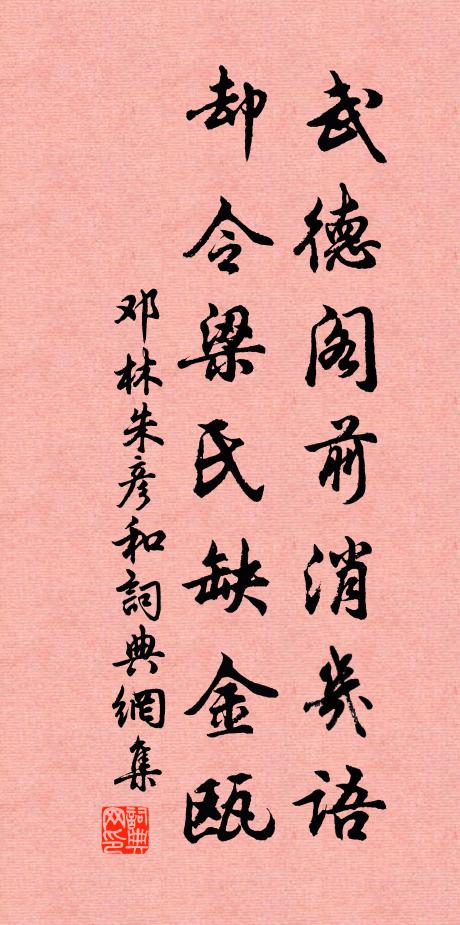 武德阁前消几语
却令梁氏缺金瓯
邓林朱彦和詞典網集
詞典网印